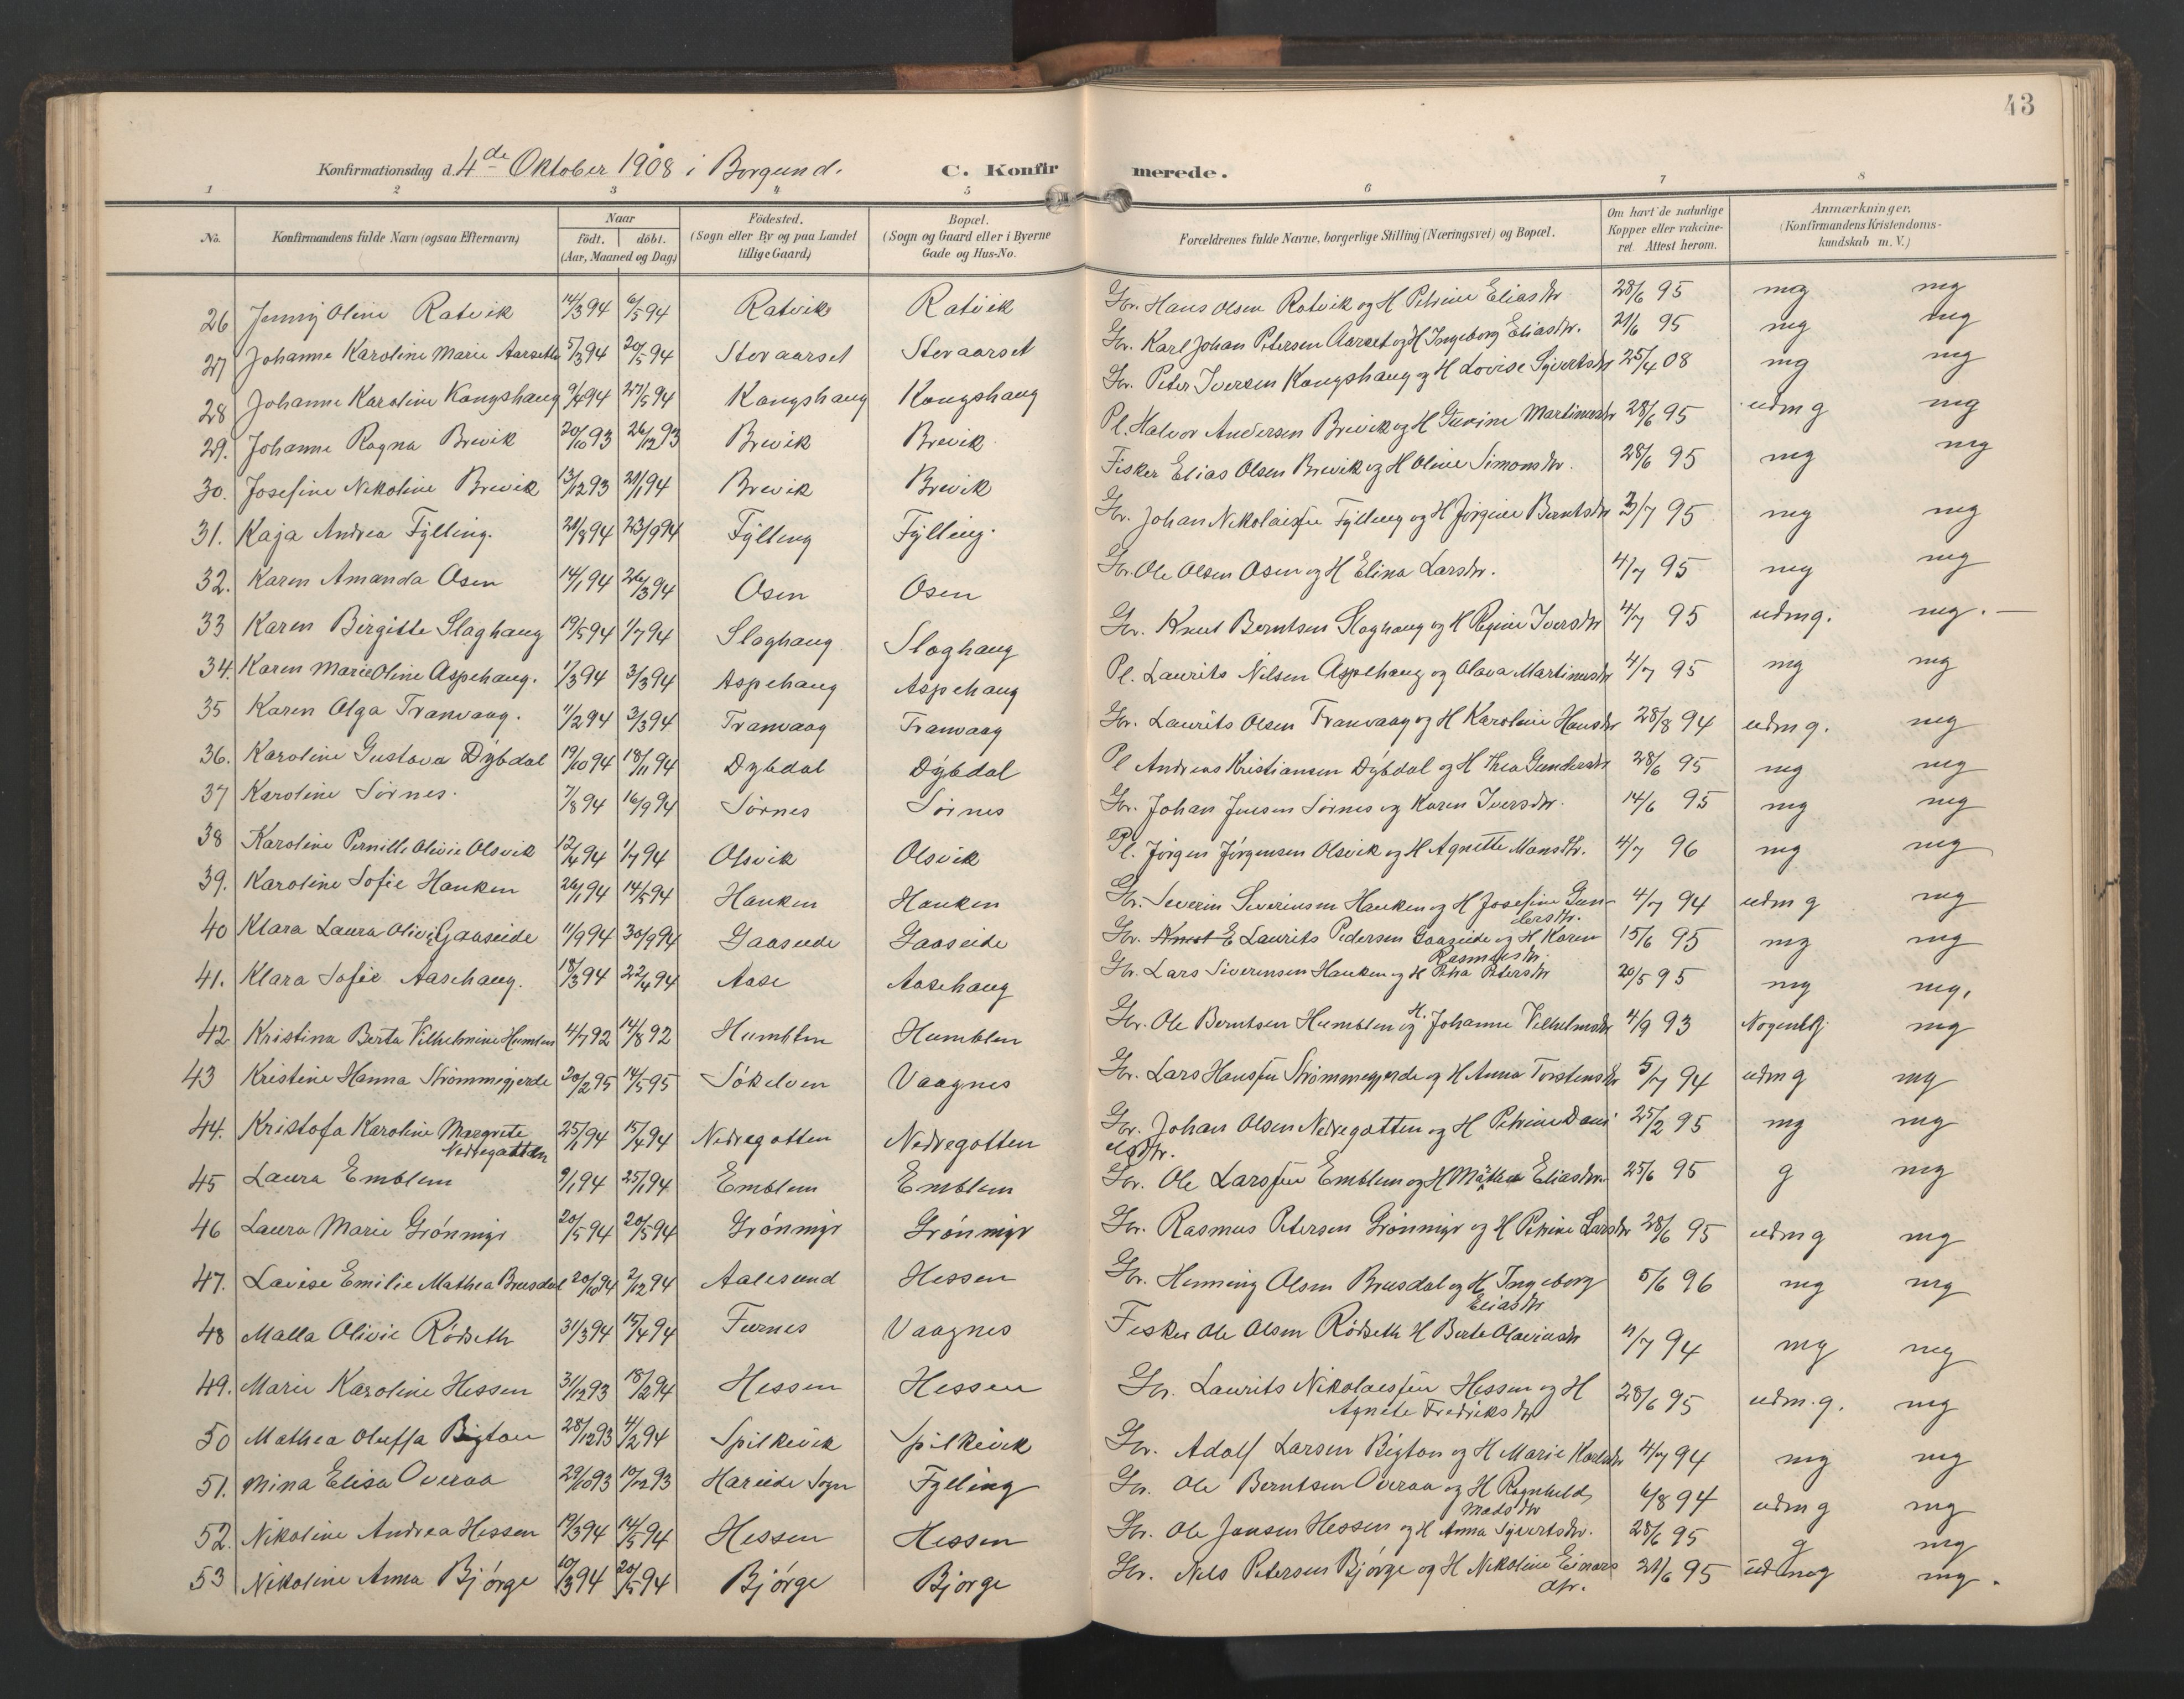 43
Konfirmationsdag d. 4de Oktober 1908 i Borgund. C. Konfirmerede.
1 2 3 4 5 6 7 8
No. Konfirmandens fulde Navn (ogsaa Efternavn) Naar født. døbt. (Aar, Maaned og Dag) Fødested. (Sogn eller By og paa Landet tillige Gaard) Bopæl. (Sogn og Gaard eller i Byerne Gade og Hus-No. Forældrenes fulde Navne, borgerlige Stilling (Næringsvei) og Bopæl. Om havt de naturlige Kopper eller vakcineret. Attest herom. Anmærkninger. (Konfirmandens Kristendomskundskab m. V.)
26 Jenny Oline Ratvik 14/3 94 6/5 94 Ratvik Ratvik Gbr. Hans Olsen Ratvik og H Petrine Eliasdtr 28/6 95 mg mg
27 Johanne Karoline Marie Aarseth 5/3 94 20/5 94 Storaarset Storaarset Gbr. Karl Johan Petersen Aarset og H Ingeborg Eliasdtr. 21/6 95 mg mg
28 Johanne Karoline Kongshaug 9/4 94 27/5 94 Kongshaug Kongshaug Gbr. Peter Iversen Kongshaug og H Lovise Syvertsdtr 25/4 08 mg mg
29. Johanne Ragna Brevik 20/10 93 26/12 93 Brevik Brevik Pl. Halvor Andersen Brevik og H Gurine Martinusdtr 28/6 95 udmg mg
30. Josefine Nikoline Brevik 13/12 93 21/1 94 Brevik Brevik Fisker Elias Olsen Brevik og H Oline Simonsdtr. 28/6 95 mg mg
31. Kaja Andrea Fylling. 21/8 94 23/9 94 Fylling Fylling. Gbr. Johan Nikolaisen Fylling og H Jørgine Berntsdtr 3/7 95 mg mg
32. Karen Amanda Osen 14/1 94 26/3 94 Osen Osen Gbr. Ole Olsen Osen og H Elina Larsdtr. 4/7 95 mg mg
33 Karen Birgitte Slaghaug 19/5 94 1/7 94 Slaghaug Slaghaug Gbr. Knut Berntsen Slaghaug og H Regine Iversdtr 4/7 95 udmg. mg. —
34. Karen Marie Oline Aspehaug. 1/3 94 3/3 94 Aspehaug Aspehaug Pl. Laurits Nilsen Aspehaug og Olava Martinusdtr 4/7 95 mg mg
35 Karen Olga Tranvaag. 11/2 94 3/3 94 Tranvaag Tranvaag Gbr. Laurits Olsen Tranvaag og H Karoline Hansdtr 28/8 94 udmg. mg
36. Karoline Gustava Dybdal 19/10 94 18/11 94 Dybdal Dybdal Pl Andreas Kristiansen Dybdal og H Thea Gundersdtr 28/6 95 mg mg
37 Karoline Sørnes. 7/8 94 16/9 94 Sørnes Sørnes Gbr. Johan Jensen Sørnes og Karen Iversdtr. 14/6 95 mg mg
38 Karoline Pernille Olivie Olsvik 12/4 94 1/7 94 Olsvik Olsvik Pl. Jørgen Jørgensen Olsvik og H Agnette Mansdtr. 4/7 96 mg mg
39. Karoline Sofie Hanken 26/1 94 14/5 94 Hanken Hanken Gbr. Severin Severinsen Hanken og H Josefine Gundersdtr. 4/7 94 udmg mg
40 Klara Laura Olivie Gaaseide 11/9 94 30/9 94 Gaaseide Gaaseide Gbr. Laurits Pedersen Gaaseide og H Karen Rasmusdtr. 15/6 95 mg mg
41. Klara Sofie Aasehaug. 18/3 94 22/4 94 Aase Aasehaug Gbr. Lars Siverinsen Hanken og H Petra Petersdtr 20/5 95 mg mg.
42 Kristina Berta Vilhelmine Humlen 4/7 92 14/8 92 Humblen Humblen Gbr. Ole Berntsen Humblen og H. Johanne Vilhelmsdtr 4/9 93 mg
43 Kristine Hanna Strømmegjerde 20/2 95 14/5 95 Søkelven Vaagnes Gbr. Lars Hansen Strømmegjerde og H Anna Torstensdtr 5/7 94 udmg mg
44. Kristofa Karoline Margrete Nedregotten 25/1 94 15/4 94 Nedregotten Nedregotten Gbr. Johan Olsen Nedregotten og H Petrine Danielsdtr. 25/2 95 mg mg
45 Laura Emblem 9/1 94 25/1 94 Emblem Emblem Gbr. Ole Larsen Emblem og H Mathea Eliasdtr. 25/6 95 g mg
46 Laura Marie Grønmyr 20/5 94 20/5 94 Grønmyr Grønmyr Gbr. Rasmus Petersen Grønmyr og H Petrine Larsdtr 28/6 95 udmg mg
47. Lovise Emilie Mathea Brusdal 20/10 94 2/12 94 Aalesund Hessen Gbr. Henning Olsen Brusdal og H Ingeborg Eliasdtr 5/6 96 mg mg
48 Malla Olivie Rødseth 31/3 94 15/4 94 Furnes Vaagnes Fisker Ole Olsen Rødseth H Berte Olavinsdtr 11/7 94 mg mg
49. Marie Karoline Hessen 31/12 93 18/2 94 Hessen Hessen Gbr. Laurits Nikolaisen Hessen og H Agnete Fredriksdtr 28/6 95 udm.g. mg
50 Mathea Oluffa Bigton 28/12 93 4/2 94 Spilkevik Spilkevik Gbr. Adolf Larsen Bigton og H Marie Karlsdtr 4/7 94 mg mg
51. Mina Elisa Overaa 29/10 93 10/12 93 Hareide Sogn Fylling Gbr. Ole Berntsen Overaa og H Ragnhild Madsdtr 6/8 94 udmg mg
52. Nikoline Andrea Hessen 19/3 94 14/5 94 Hessen Hessen Gbr. Ole Jansen Hessen og H Anna Syvertsdtr. 28/6 95 g mg
53 Nikoline Anna Bjørge 10/3 94 20/5 94 Bjørge Bjørge Gbr. Nels Petersen Bjørge og H Nikoline Einarsdtr. 21/6 95 udmg mg.